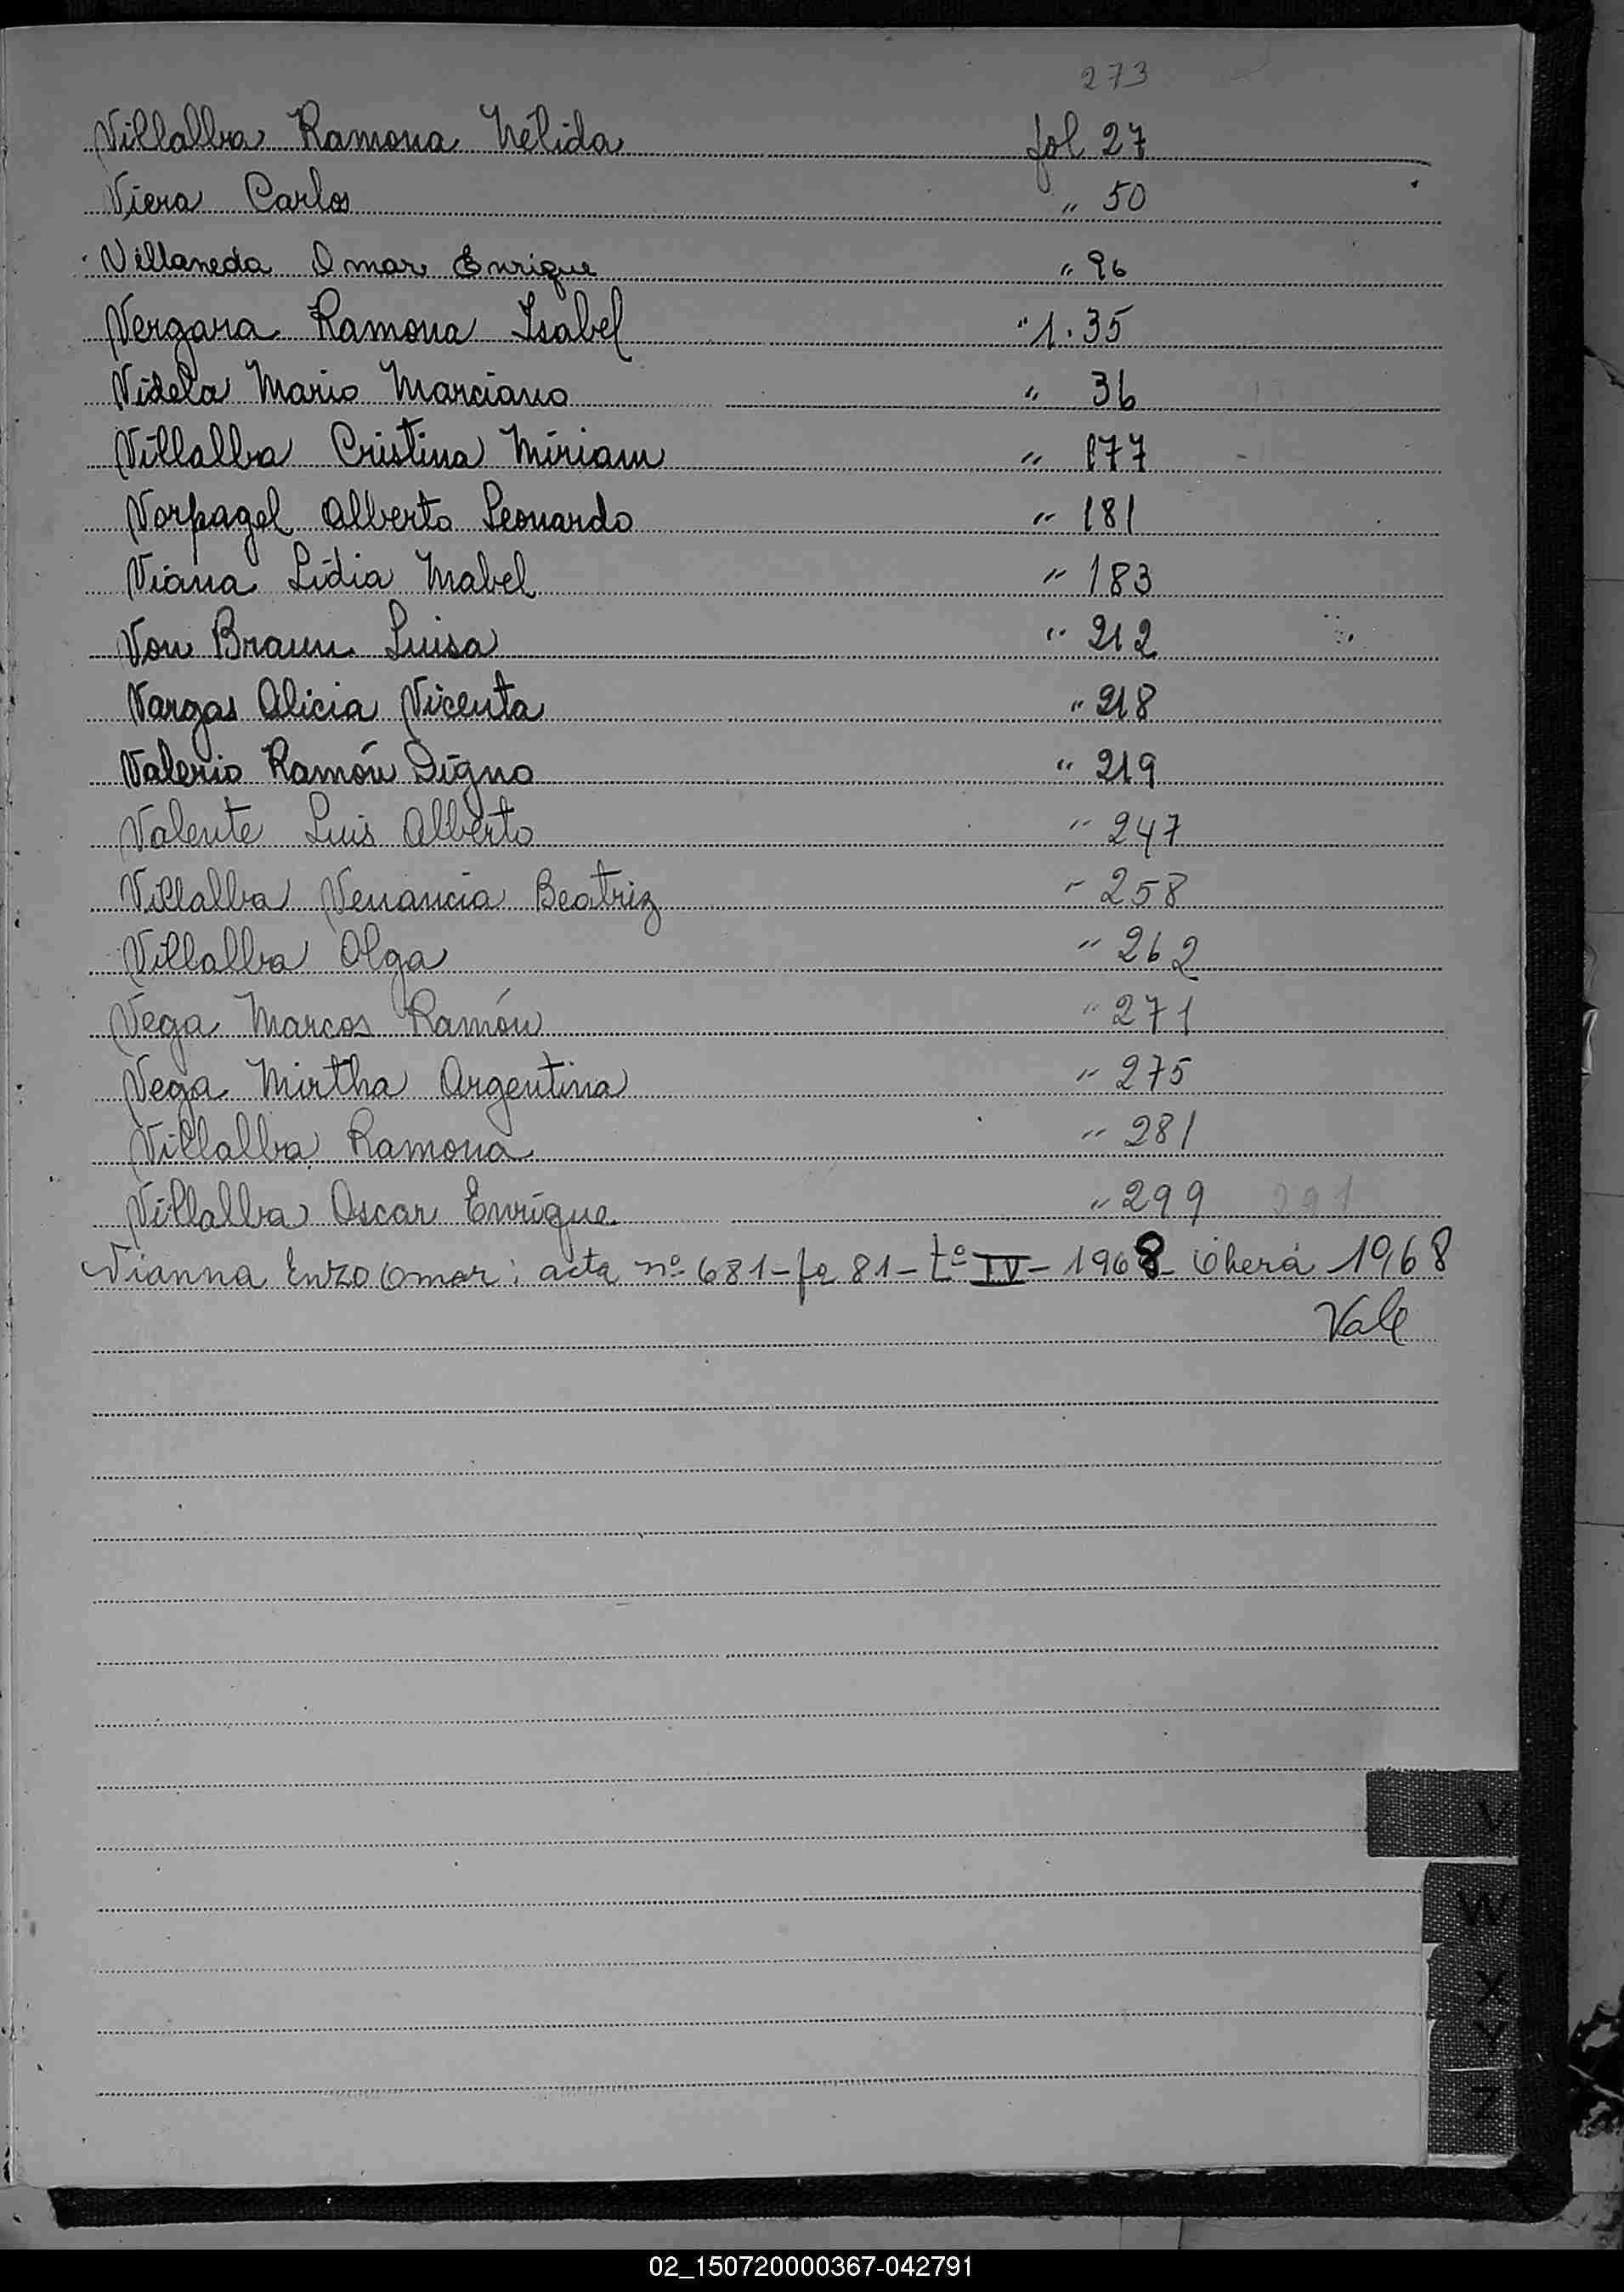 273
Villalba Ramona Nélida fol 27
Viera Carlos " 50
Villaneda Omar Enrique " 96
Vergara Ramona Isabel " 1.35
Videla Mario Marciano " 36
Villalba Cristina Miriam " 177
Vorpagel Alberto Leonardo " 181
Viana Lidia Mabel " 183
Von Braun Luisa " 212
Vargas Alicia Vicenta " 218
Valerio Ramón Digno " 219
Valente Luis Alberto " 247
Villalba Venancia Beatriz " 258
Villalba Olga " 262
Vega Marcos Ramón " 271
Vega Mirtha Argentina " 275
Villalba Ramona " 281
Villalba Oscar Enrique " 299 291
Vianna Enzo Omar: acta nº 681-fo 81-tº IV-1968 Oberá 1968
Vale
V
W
X
Y
Z
02_150720000367-042791